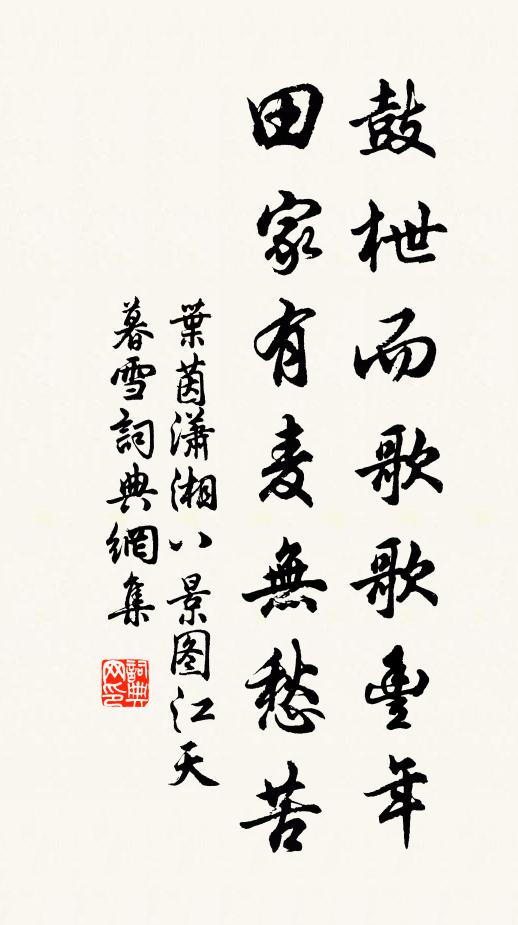 鼓枻而歌歌豊年
田家有麦無愁苦
葉茵瀟湘八景图江天
暮雪詞典網集
詞典网印